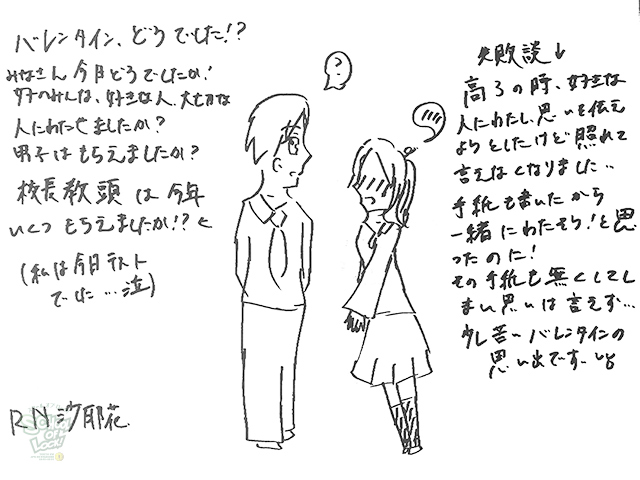 バレンタイン、どうでした!?
みなさん今日どうでしたか!
女子のみんなは、好きな人、大切な
人にわたせましたか?
男子はもらえましたか?
校長教頭は今年
いくつもらえましたか!?
(私は今日テスト
でした…泣)
RN沙耶花
?
失敗談↓
高3の時、好きな
人にわたし、思いを伝え
ようとしたけど照れて
言えなくなりました…
手紙も書いたから
一緒にわたそう!と思
ったのに!
その手紙も無くしてし
まい思いは言えず…
少し苦いバレンタインの
思い出です。